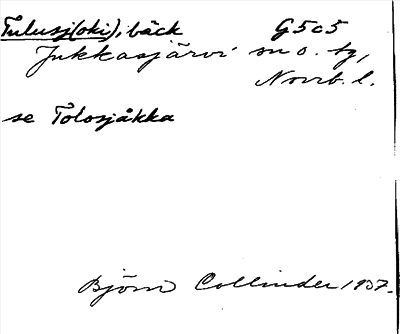 Tulusj(oki), bäck G5c5
Jukkasjärvi sn o. tg,
Norrb. l.
se Tolosjåkka
Björn Collinder 1937.